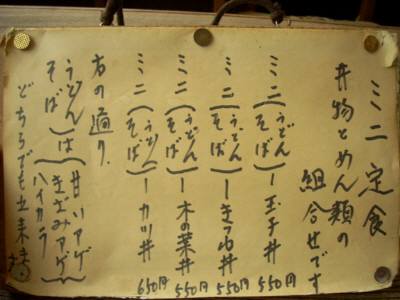 ミニ定食
丼物とめん類の
組合せです
ミニ(うどん そば)ー玉子丼 550円
ミニ(うどん そば)ーきつね丼 550円
ミニ(うどん そば)ー木の葉丼 550円
ミニ(うどん そば)ーカツ丼 650円
右の通り
うどん そば)は(甘いアゲ きざみアゲ ハイカラ)
どちらでも出来ます